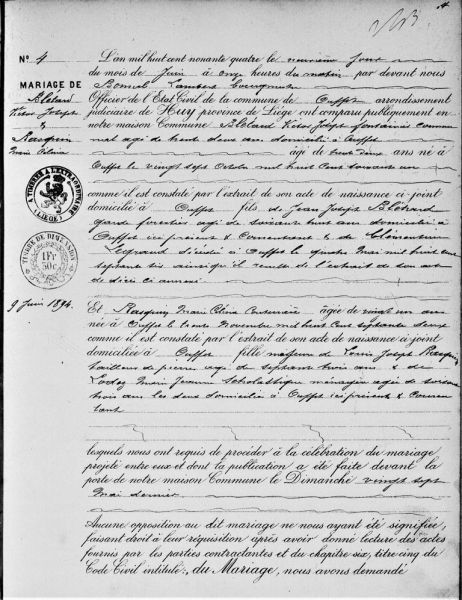 Nº 4
MARIAGE DE
Blétard
Victor Joseph
&
Rasquin
Marie Célina
A TIMBRER A L'EXTRAORDINAIRE
(LIÈGE)
TIMBRE DE DIMENSION
1Fr
50c
9 juin 1894.
L'an mil huit cent nonante quatre le neuvième jour
du mois de Juin à onze heures du matin par devant nous
Bonmal Lambert Bourgmestre
Officier de l'Etat Civil de la commune de Ouffet arrondissement
judiciaire de Huy province de Liège ont comparu publiquement en
notre maison Commune Blétard Victor Joseph fontainier commu
nal agé de trente deux ans domicilié à Ouffet
âgé de trente deux ans né à
Ouffet le vingt sept Octobre mil huit cent soixante un
comme il est constaté par l'extrait de son acte de naissance ci-joint
domicilié à Ouffet fils de Jean Joseph Blétard
garde forestier agé de soixante huit ans domicilié à
Ouffet ici présent & Consentant & de Clémentine
Legrand décédée à Ouffet le quatre Mai mil huit cent
septante six ainsi qu'il résulte de l'extrait de son acte
de décès ci annexé
Et Rasquin Marie Célina Couturière âgée de vingt un ans
née à Ouffet le trente Novembre mil huit Cent septante deux
comme il est constaté par l'extrait de son acte de naissance ci-joint
domiciliée à Ouffet fille majeure de Louis Joseph Rasquin
tailleur de pierre agé de septante trois ans & de
Marie Jeanne Scholastique ménagère agée de soixante
trois ans les deux domiciliés à Ouffet ici présents & Consen
tant
lesquels nous ont requis de procéder à la célébration du mariage
projeté entre eux et dont la publication a été faite devant la
porte de notre maison Commune le Dimanche vingt sept
Mai dernier
Aucune opposition au dit mariage ne nous ayant été signifiée,
faisant droit à leur réquisition après avoir donné lecture des actes
fournis par les parties contractantes et du chapitre six, titre cinq du
Code Civil intitulé:, du Mariage, nous avons demandé